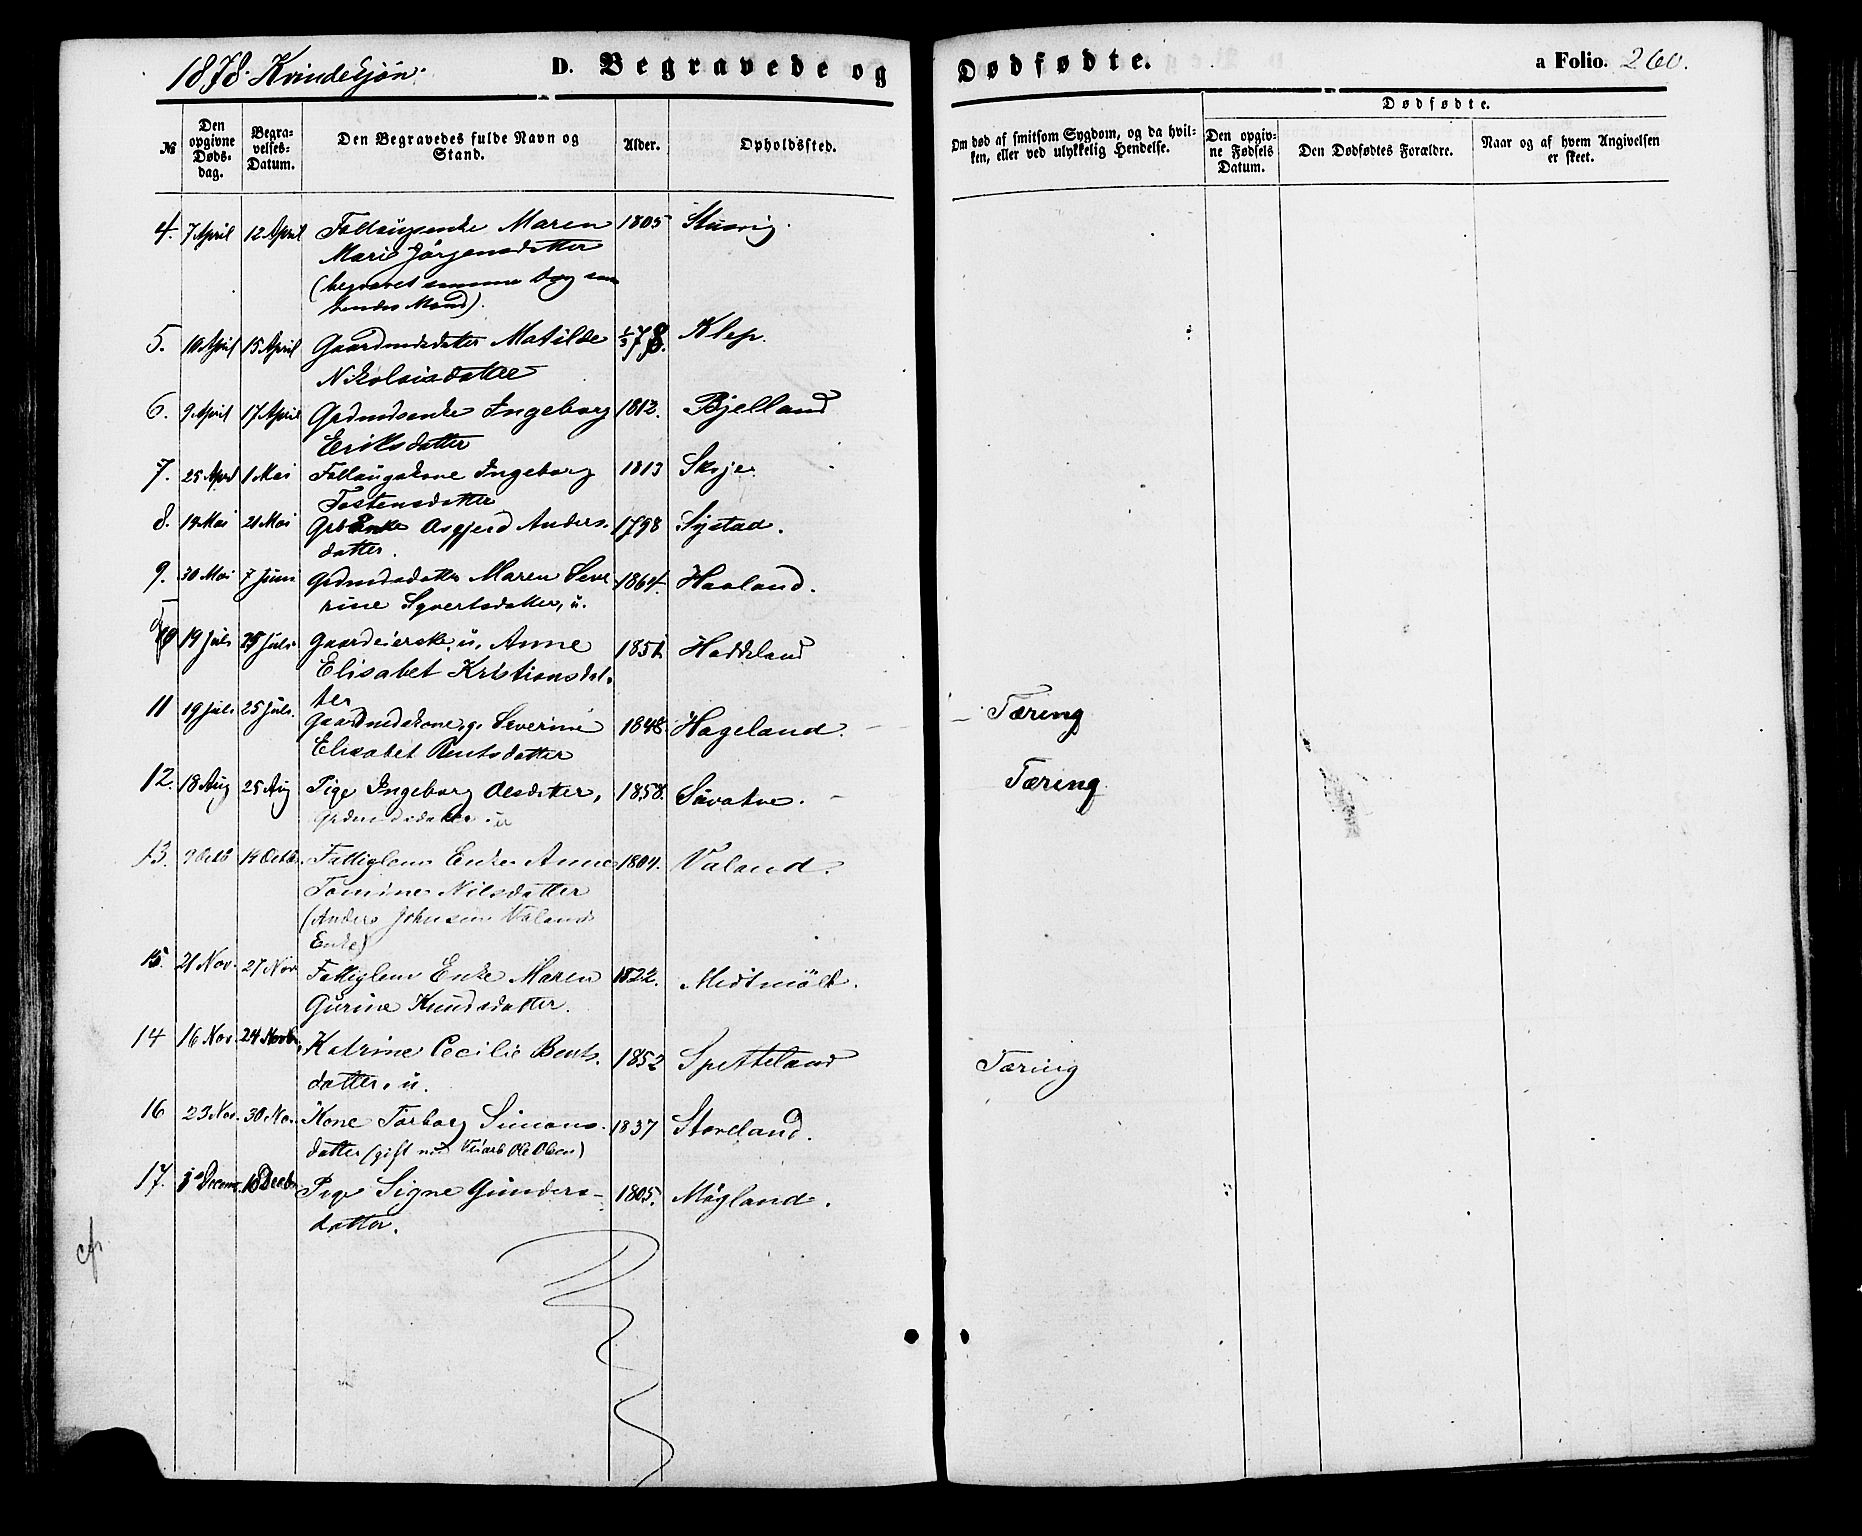 1878. Kvindekjøn.
D. Begravede og
Dødfødte.
a Folio. 260.
№
Den opgivne Døds-dag.
Begra-velses-Datum.
Den Begravedes fulde Navn og Stand.
Alder.
Opholdssted.
Om død af smitsom Sygdom, og da hvil-ken, eller ved ulykkelig Hendelse.
Dødfødte.
Den opgiv-ne Fødsels Datum.
Den Dødfødtes Forældre.
Naar og af hvem Angivelsen er skeet.
4. 7 April 12 April Maren 1805
Marie Jörgensdatter
(begravet samme Dag som
hendes Mand).
5. 10 April 15 April Gaardmdsdatter Matilde 78. Klep.
Nikolaisdatter
6. 9 April 17 April Grdmdsenke Ingeborg 1812. Bjelland
Eriksdatter
7. 25 April 1 Mai Ingeborg 1813 Skoje.
Tostensdatter
8. 19 Mai 21 Mai Enke Asgjerd Anders- 1798
datter.
9. 30 Mai 7 Juni Grdmdsdatter Maren Seve 1864. Haaland.
rine Syvertsdatter, u.
19 Juli 25 Juli Gaardeierske, u. Anne 1851 Haddeland
Elisabet Kristiansdat-
ter
11 19 Juli 25 Juli. Gaardmdskone, g. Severine 1848. Hageland. Tæring
Elisabet Bentsdatter
12. 18 Aug 25 Aug Pige Ingeborg Olsdatter, 1858. Tæring
Grdmdsdatter u
13. 9 Octb 14 Octb. Fattiglem Enke Anne 1804. Valand.
Tomine Nilsdatter
(Anders Johnsen Valands
Enke)
15. 21 Nov. 27 Nov Fattiglem Enke Maren 1822.
Gurine Knudsdatter.
14 16 Nov. 24 Novbr. Katrine Cecilie Bents- 1852 Spetteland Tæring
datter, u.
16 23 Nov. 30 Nov. Kone Torborg Simons- 1837 Stoveland.
datter (gift med Ole Olsen)
17. Pige Signe Gunders- 1805. Møgland.
datter.